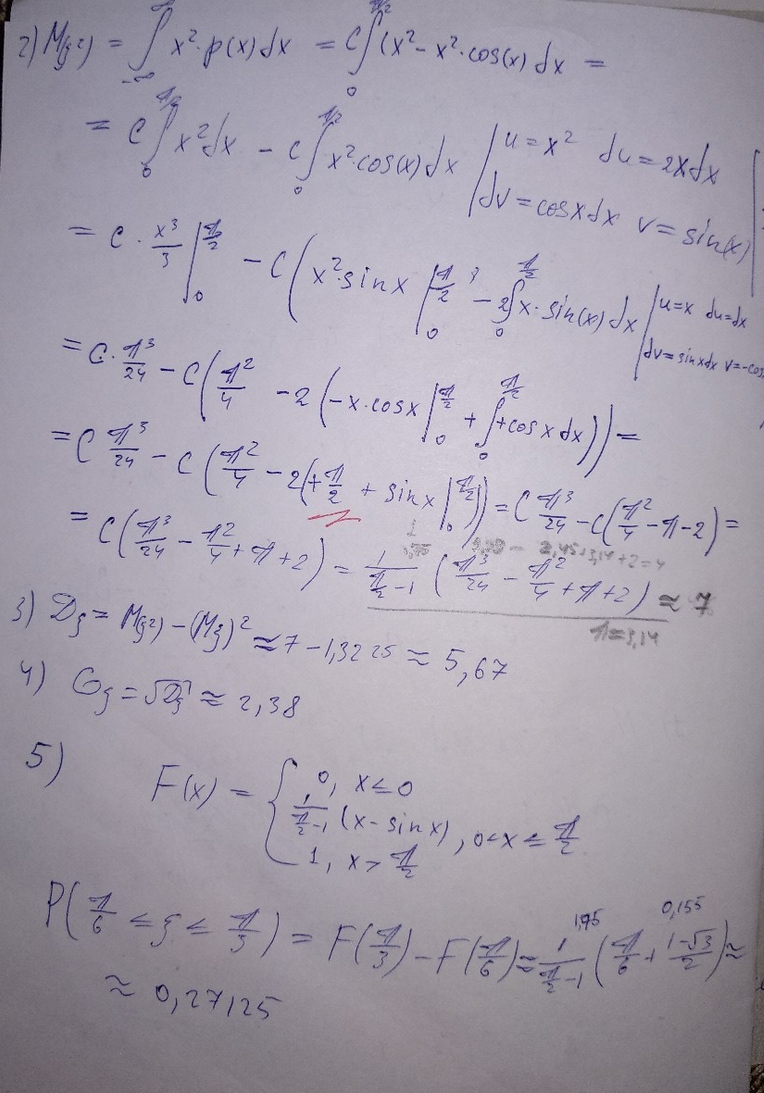 2) M(ξ²) = ∫_{-∞}^{∞} x²·p(x)dx = C∫_0^{π/2} (x² - x²·cos(x) dx =
= C∫_0^{π/2} x²dx - C∫_0^{π/2} x²cos(x)dx | u = x² du = 2xdx
dv = cosxdx v = sin(x) |
= C · x³/3 |_0^{π/2} - C( x²·sinx |_0^{π/2} - 2∫_0^{π/2} x·sin(x)dx | u=x du=dx
dv=sinxdx v=-cos
= C·π³/24 - C( π²/4 - 2( -x·cosx |_0^{π/2} + ∫_0^{π/2} +cosxdx)) =
= C π³/24 - C( π²/4 - 2(+π/2 + sinx |_0^{π/2})) = C π³/24 - C(π²/4 - π - 2) =
= C( π³/24 - π²/4 + π + 2) = 1/(π/2 - 1) ( π³/24 - π²/4 + π + 2) ≈ 7
π=3,14
3) Dξ = M(ξ²) - (Mξ)² ≈ 7 - 1,3225 ≈ 5,67
4) σξ = √Dξ ≈ 2,38
5) F(x) = { 0, x ≤ 0
1/(π/2 - 1) (x - sinx), 0<x ≤ π/2
1, x > π/2
1,75 0,155
P( π/6 ≤ ξ ≤ π/3 ) = F(π/3) - F(π/6) ≈ 1/(π/2 - 1) ( π/6 + (1-√3)/2 ) ≈
≈ 0,27125